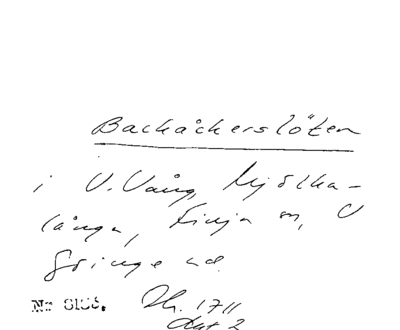 Backåkerslöten
i V. Vång, Mjölka-
långa, Finja sn, V
Göinge hd.
Nr 0105. Hk. 1711
Akt 2